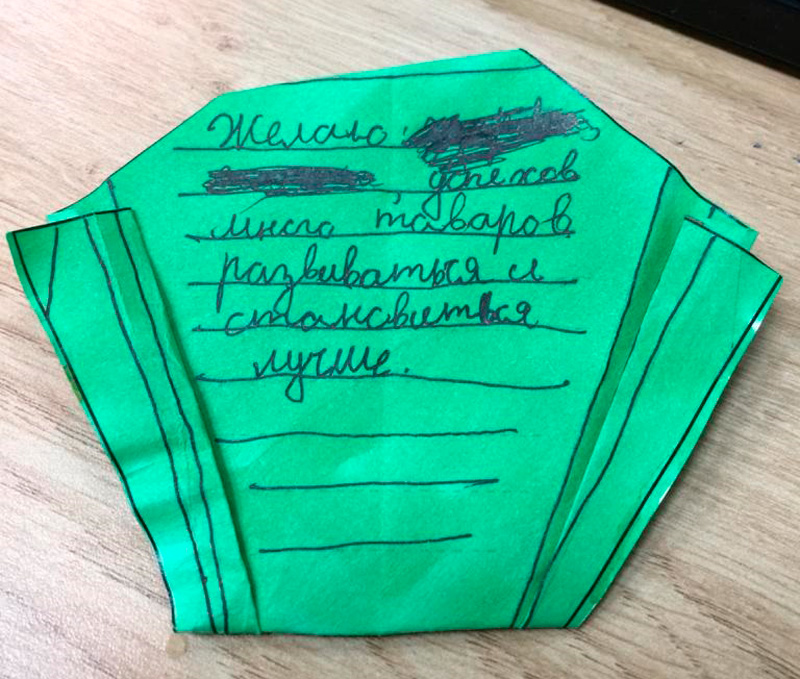 Желаю:
успехов
много таваров
развиваться и
становиться
лучше.